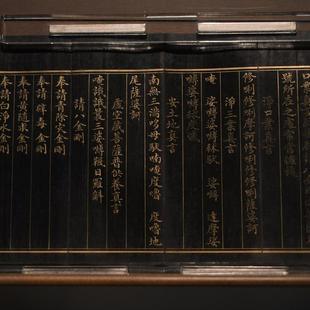 淨口業真言
修唎修唎摩訶修唎修修唎薩婆訶
淨三業真言
唵 娑嚩婆嚩秫馱 娑嚩 達摩娑
嚩婆嚩秫度憾
安土地真言
南無三滿哆母馱喃唵度嚕 度嚕地
尾薩婆訶
虛空藏菩薩普供養真言
唵誐誐曩三婆嚩韈日羅斛
請八金剛
奉請青除災金剛
奉請辟毒金剛
奉請黃隨求金剛
奉請白淨水金剛